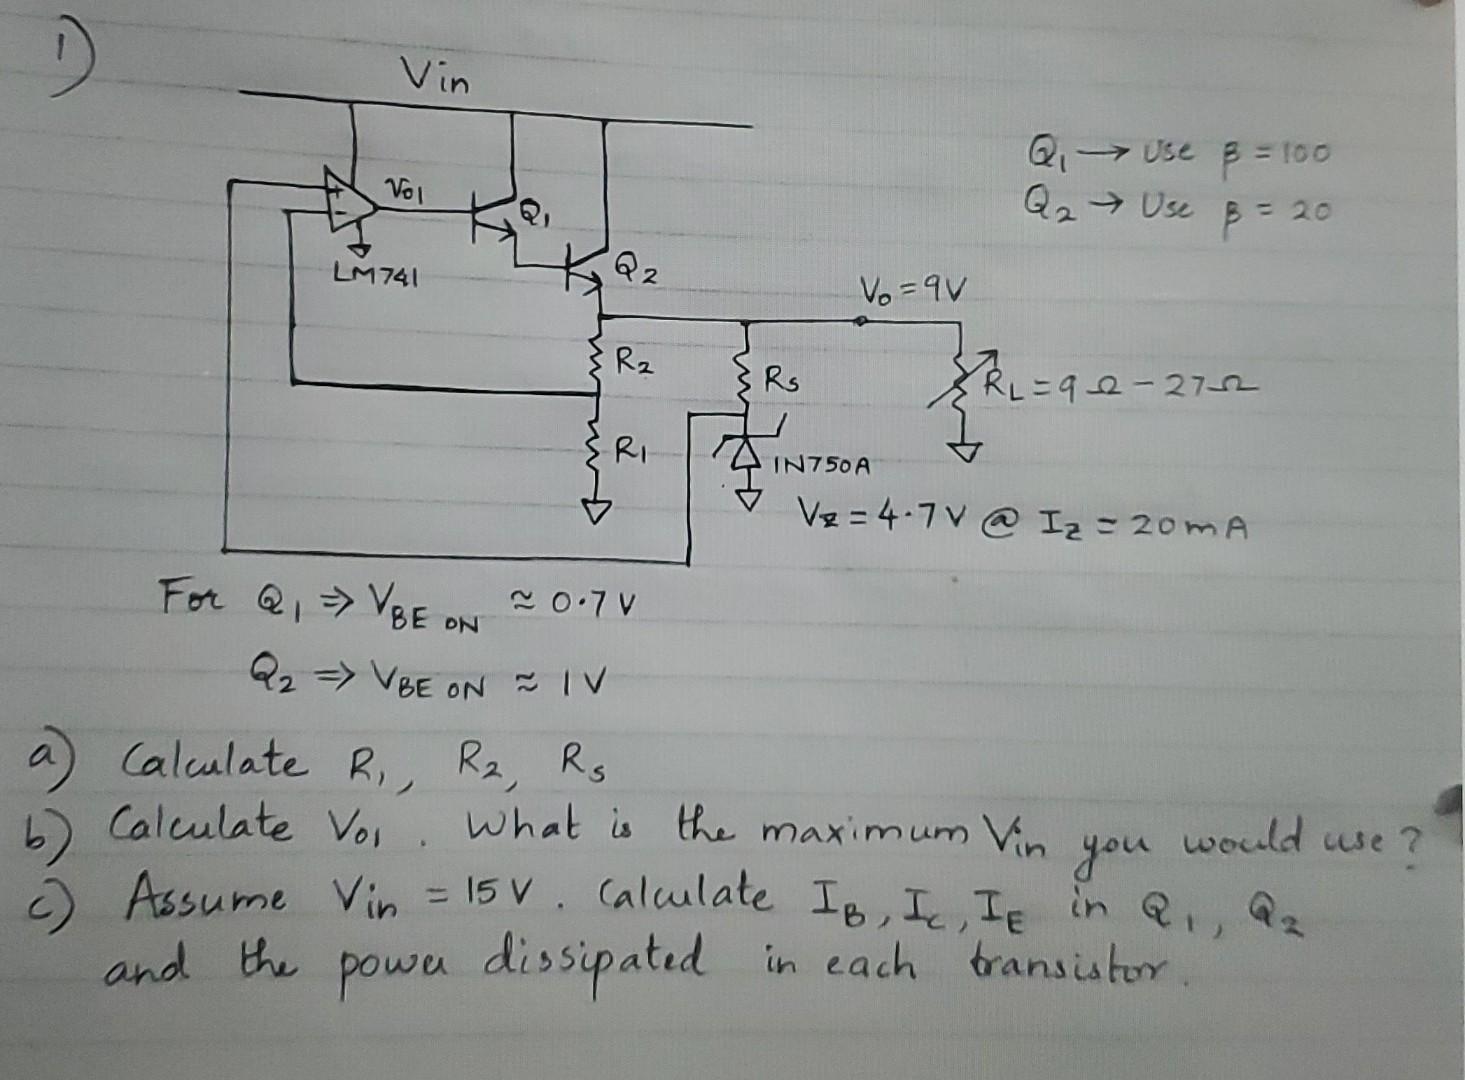 1)
Vin
Q1 → Use β = 100
Q2 → Use β = 20
+
Vo1
-
Q1
LM741
Q2
Vo = 9V
R2
Rs
RL = 9Ω - 27Ω
R1
IN750A
Vz = 4.7V @ Iz = 20mA
For Q1 ⇒ VBE ON ≈ 0.7V
Q2 ⇒ VBE ON ≈ 1V
a) Calculate R1, R2, Rs
b) Calculate Vo1. What is the maximum Vin you would use?
c) Assume Vin = 15V. Calculate IB, IC, IE in Q1, Q2
and the power dissipated in each transistor.